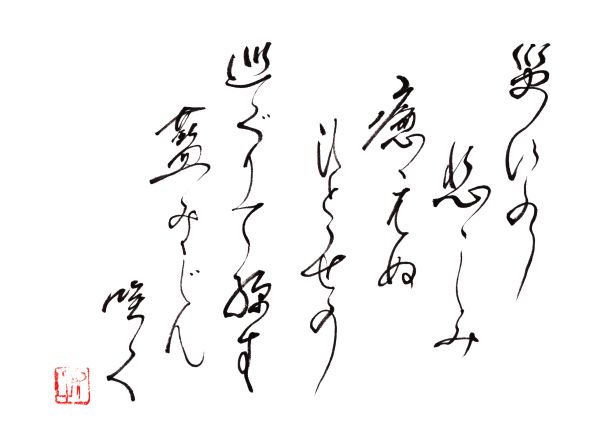 災いの
悲しみ
癒えぬ
ひとせの
巡ぐりて
藍みじん
咲く